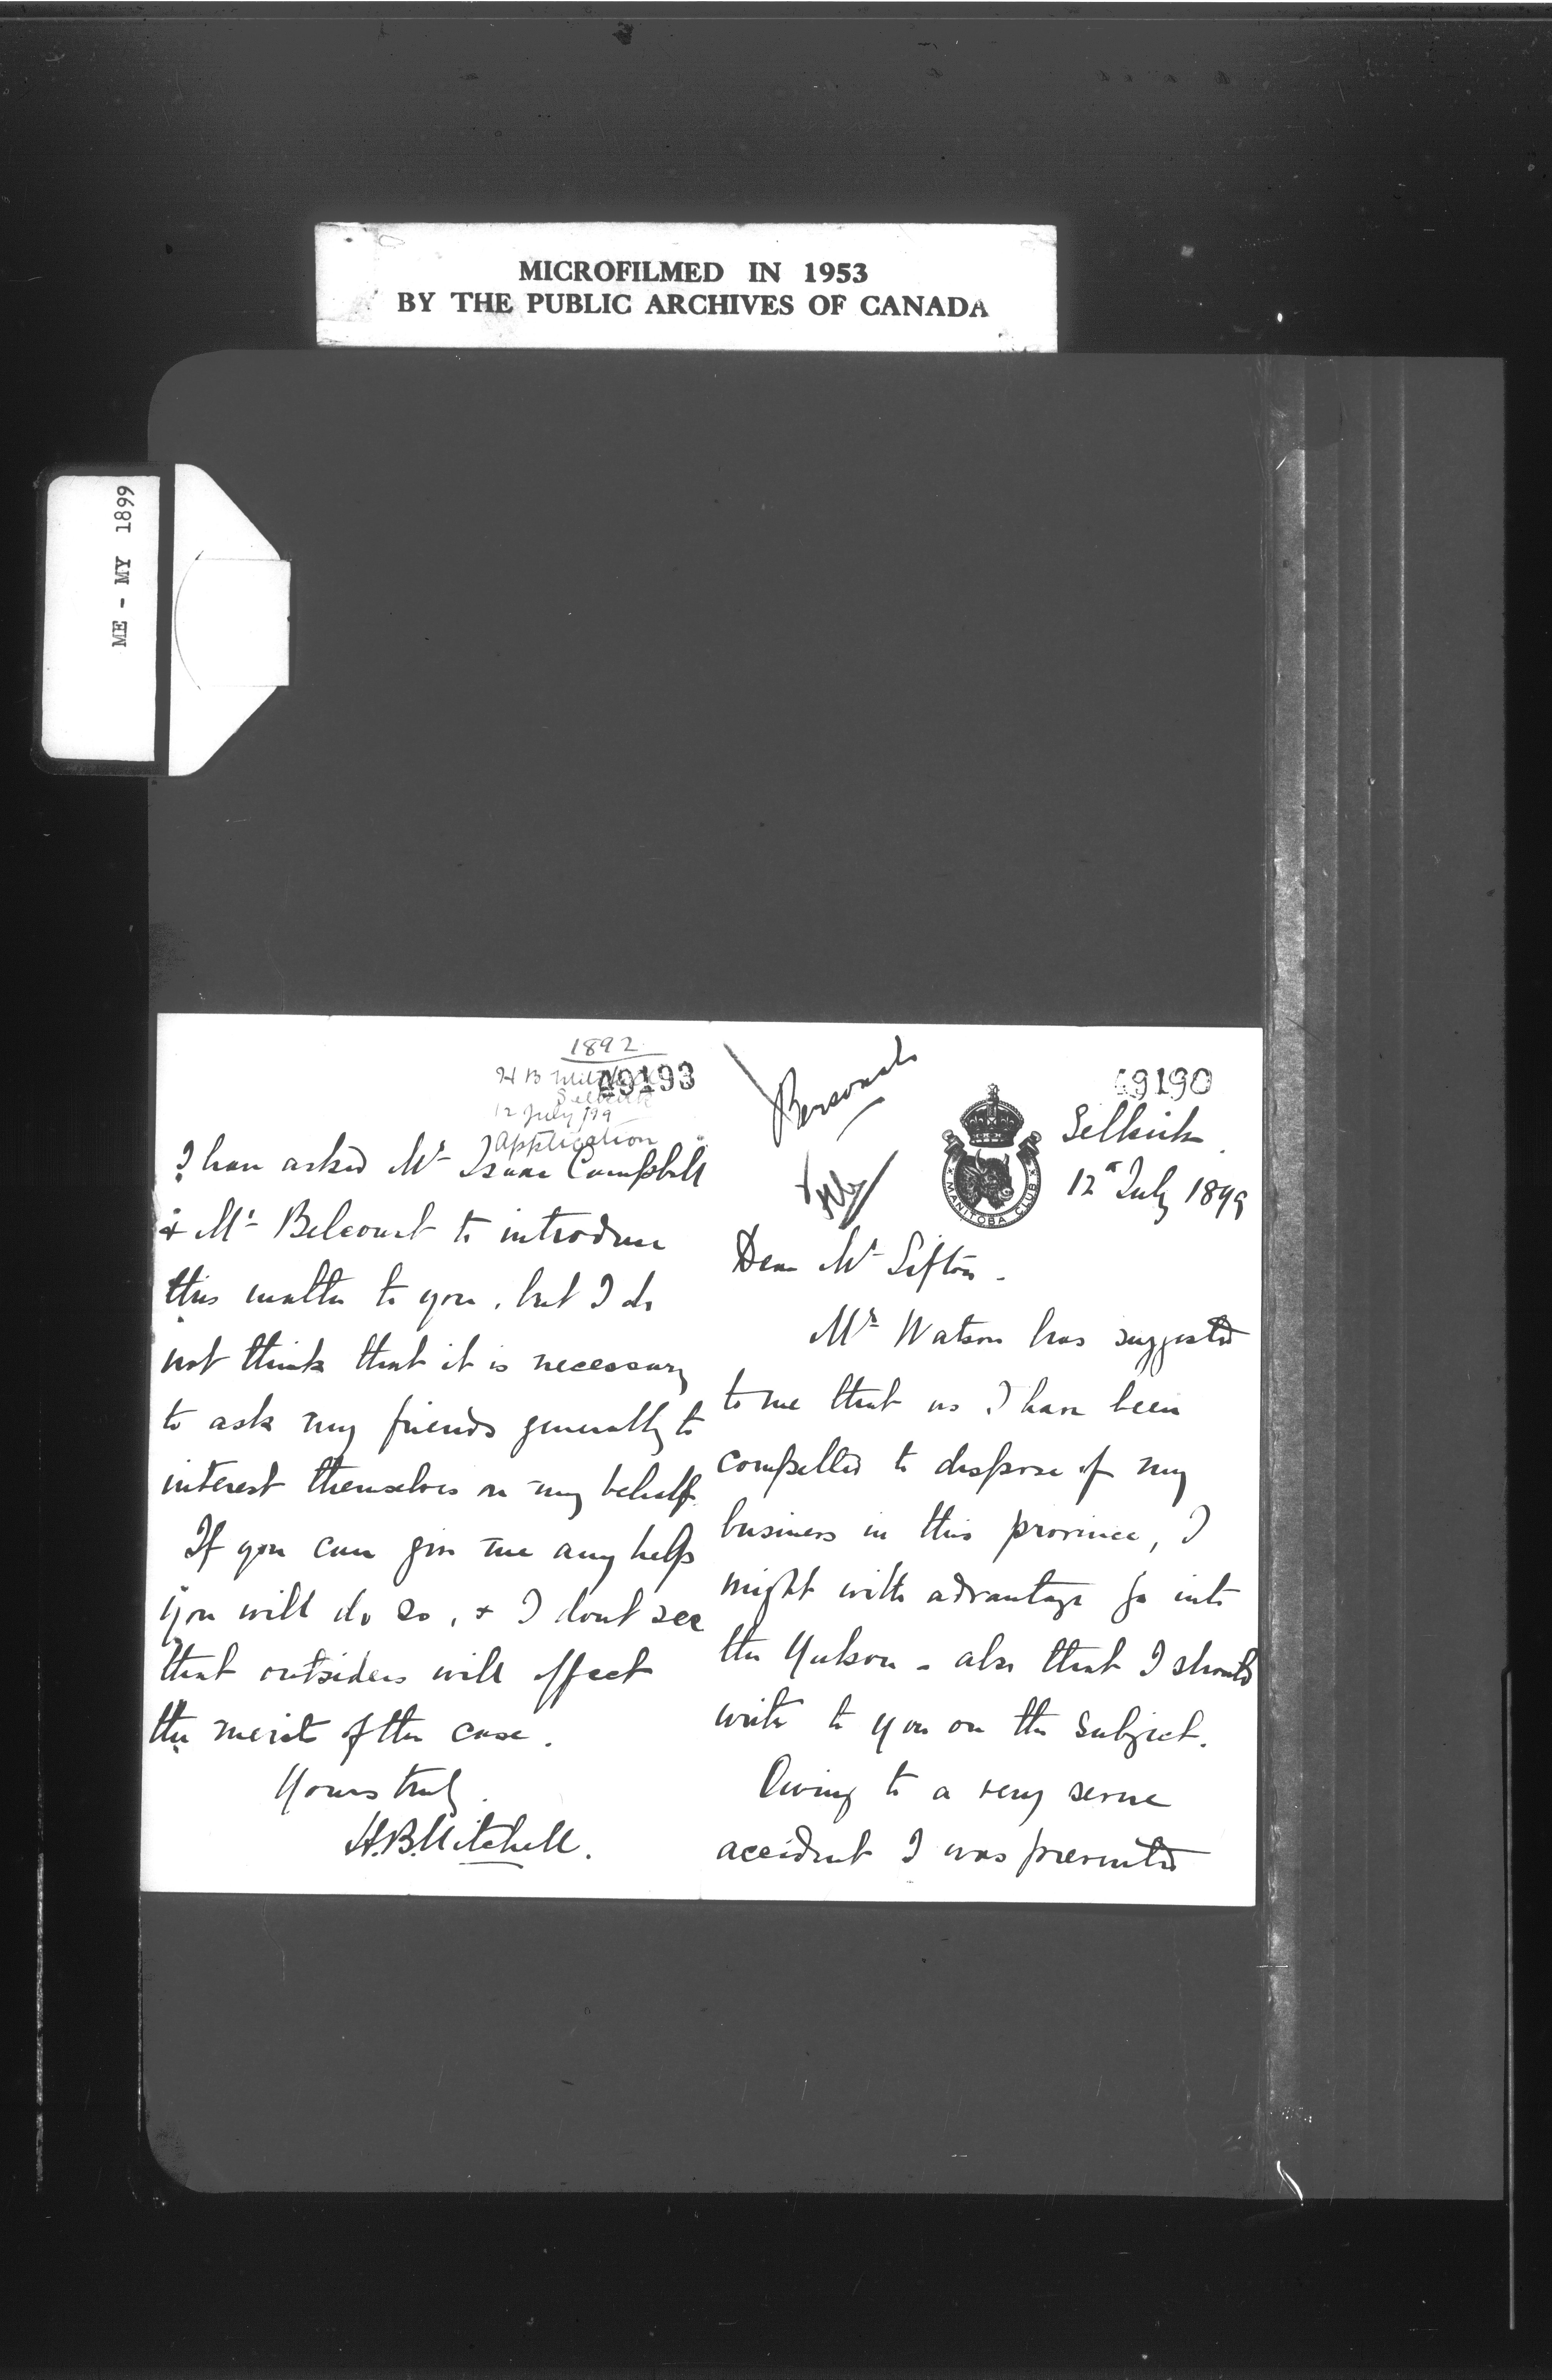 MICROFILMED IN 1953
BY THE PUBLIC ARCHIVES OF CANADA
ME - MY 1899
1892
49193
H B Mitchell
Selkirk
12 July /99
Application
I have asked Mr Isaac Campbell
& Mr Belcourt to introduce
this matter to you, but I do
not think that it is necessary
to ask my friends generally to
interest themselves on my behalf.
If you can give me any help
you will do so, & I dont see
that outsiders will effect
the merits of the case.
Yours truly.
H.B. Mitchell.
Personal
49190
MANITOBA CLUB
Selkirk
12th July 1899
Dear Mr Sifton.
Mr Watson has suggested
to me that as I have been
compelled to dispose of my
business in this province, I
might with advantage go into
the Yukon - also that I should
write to you on the subject.
Owing to a very severe
accident I was prevented